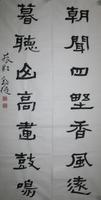 朝聞四野香風遠
暮聽山高畫鼓鳴